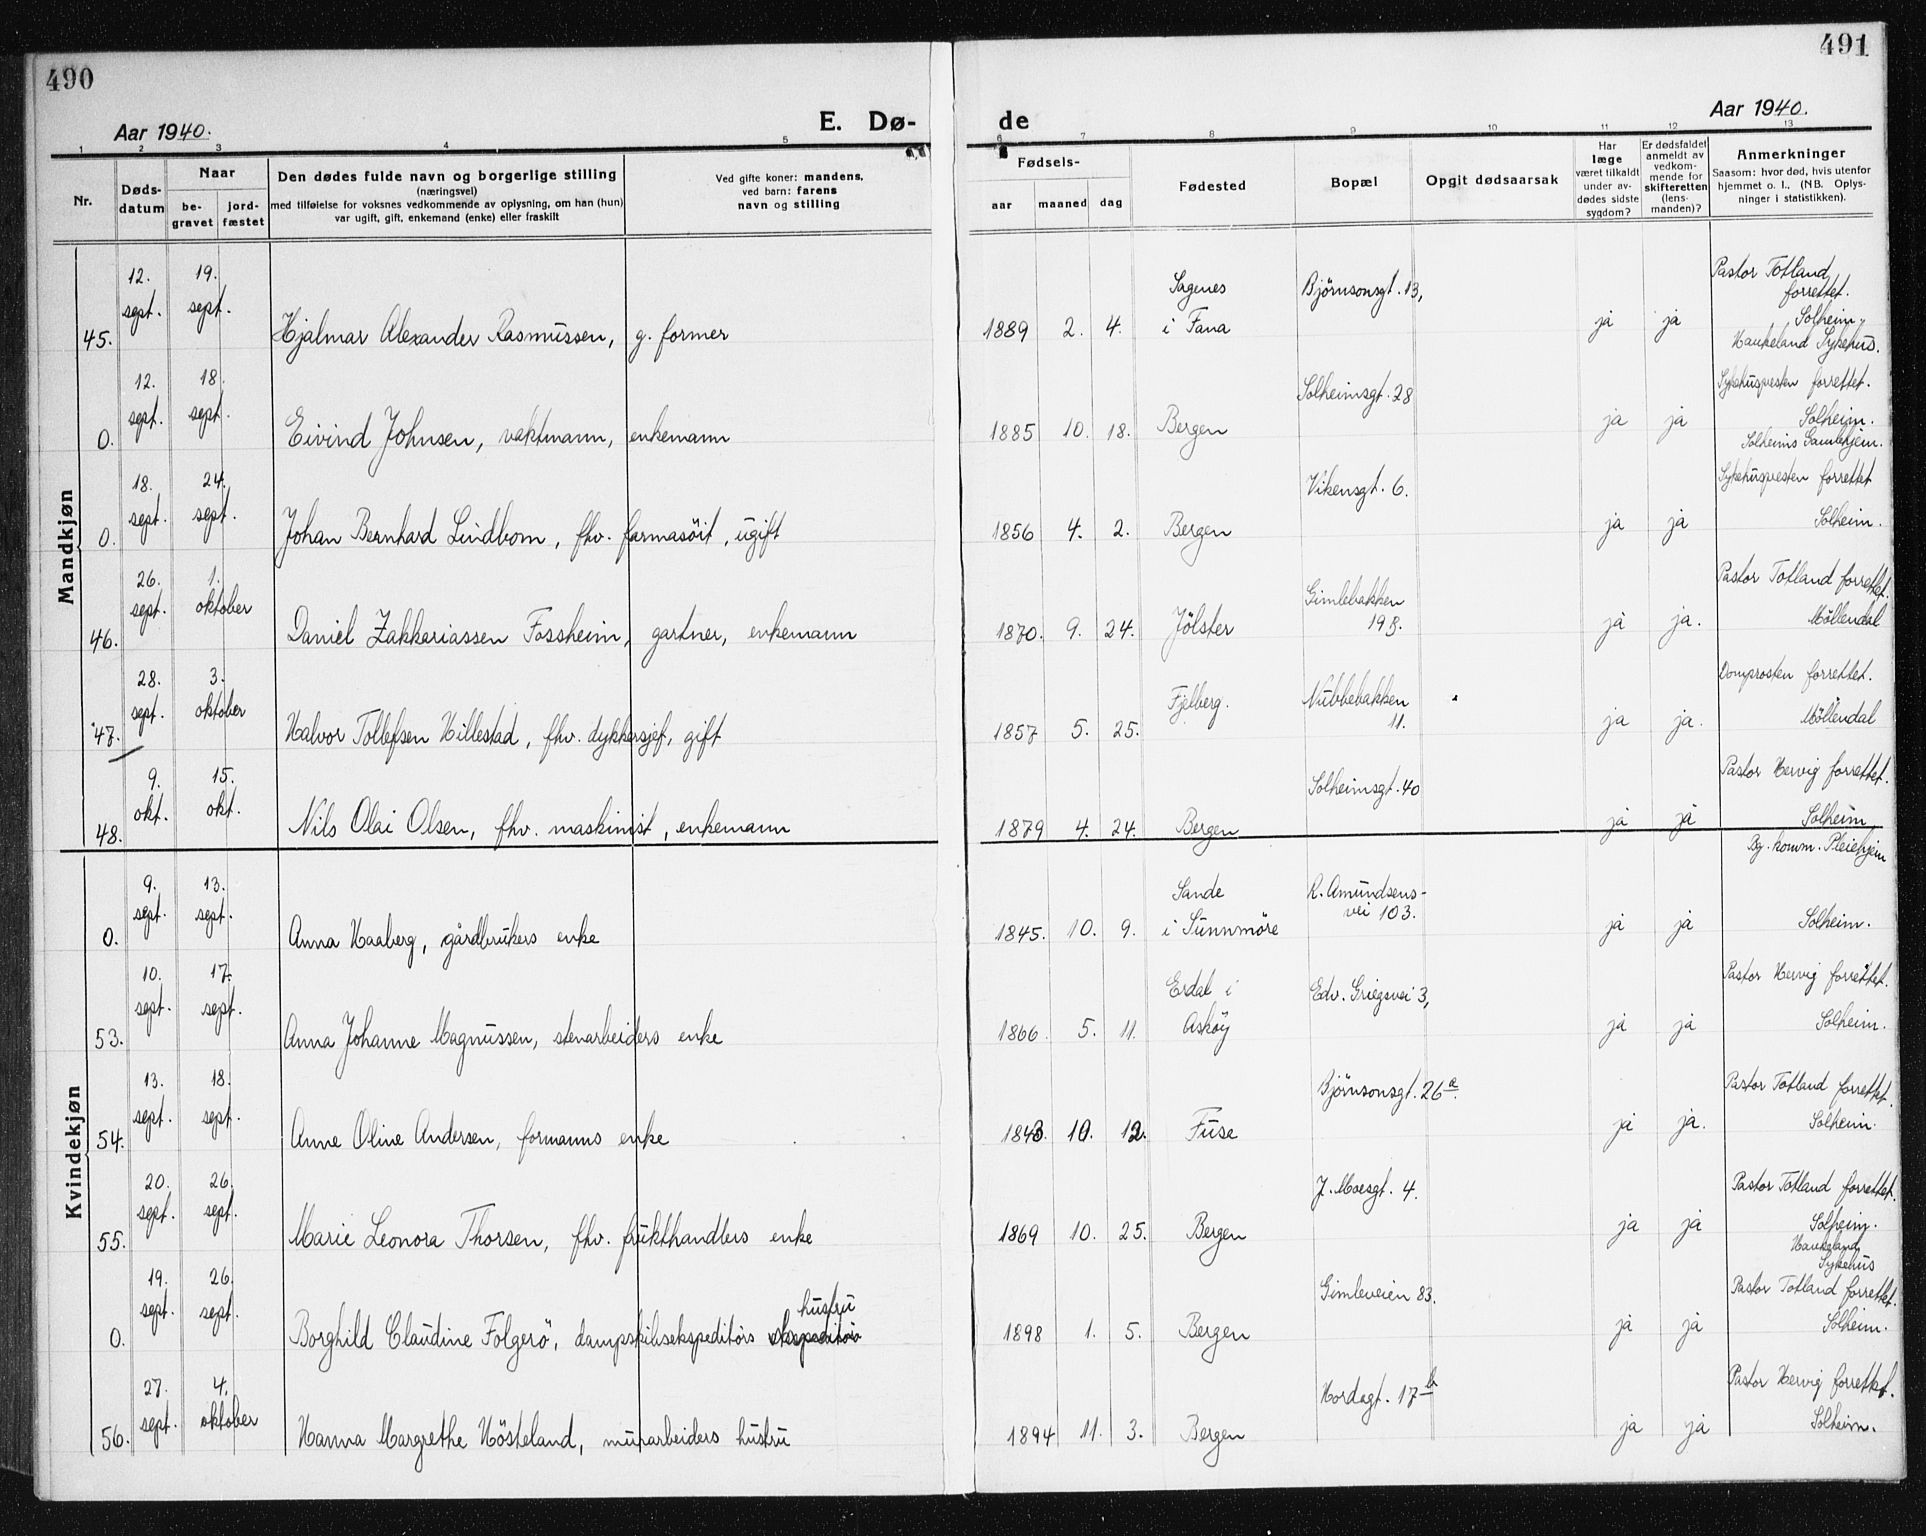 490
491
Aar 1940.
E. Dø-
de
Aar 1940.
1 2 3 4 5 6 7 8 9 10 11 12 13
Nr.
Døds-
datum
Naar
be-
gravet
jord-
fæstet
Den dødes fulde navn og borgerlige stilling
(næringsvei)
med tilføielse for voksnes vedkommende av oplysning, om han (hun)
var ugift, gift, enkemand (enke) eller fraskilt
Ved gifte koner: mandens,
ved barn: farens
navn og stilling
Fødsels-
aar maaned dag
Fødested
Bopæl
Opgit dødsaarsak
Har
læge
været tilkaldt
under av-
dødes sidste
sygdom?
Er dødsfaldet
anmeldt av
vedkom-
mende for
skifteretten
(lens-
manden)?
Anmerkninger
Saasom: hvor død, hvis utenfor
hjemmet o. l., (NB. Oplys-
ninger i statistikken).
Mandkjøn
12. 19. Pastor Totland
sept. sept. Sagenes Bjørnsonsgt. 13, forrettet.
45. Hjalmar Alexander Rasmussen, g. former 1889 2. 4. i Fana ja ja Solheim.
Haukeland Sykehus.
12. 18. Solheimsgt. 28 Sykehuspresten forrettet.
sept. sept. Solheim.
0. Eivind Johnsen, vaktmann, enkemann 1885 10. 18. Bergen ja ja Solheims Gamlehjem.
18. 24. Vikensgt. 6. Sykehuspresten forrettet
sept. sept.
0. Johan Bernhard Lindbom, fhv. farmasöit, ugift 1856 4. 2. Bergen ja ja Solheim.
26. 1. Gimlebakken Pastor Totland forrettet.
sept. oktober 19B.
46. Daniel Zakkariassen Fossheim, gartner, enkemann 1870. 9. 24. Jölster ja ja. Möllendal
28. 3. Fjelberg. Nubbebakken Domprosten forrettet.
sept. oktober 11.
47. Halvor Tollefsen Hillestad, fhv. dykkersjef, gift 1857 5. 25. ja ja. Möllendal
9. 15. Solheimsgt. 40 Pastor Hervig forrettet.
okt. okt.
48. Nils Olai Olsen, fhv. maskinist, enkemann 1879 4. 24. Bergen ja ja Solheim
Bg. komm. Pleiehjem
Kvindekjøn
9. 13. Sande R. Amundsens-
sept. sept. vei 103.
0. Anna Haaberg, gårdbrukers enke 1845. 10. 9. i Sunnmöre ja ja Solheim.
10. 17. Erdal i Edv. Griegsvei 3, Pastor Hervig forrettet.
sept. sept.
53. Anna Johanne Magnussen, stenarbeiders enke 1866. 5. 11. Asköy ja ja Solheim.
13. 18. Bjørnsonsgt. 26a. Pastor Totland forrettet.
sept. sept.
54. Anne Oline Andersen, formanns enke 1843. 10. 12. Fuse ja ja. Solheim.
20. 26. J. Moesgt. 4. Pastor Totland forrettet.
sept. sept. Solheim.
55. Marie Leonora Thorsen, fhv. frukthandlers enke 1869 10. 25. Bergen ja ja Haukeland
Sykehus
19. 26. Gimleveien 83. Pastor Totland forrettet.
sept. sept. hustru
0. Borghild Claudine Folgerö, dampskibsekspeditörs 1898 1. 5. Bergen ja ja Solheim.
27. 4. Hordagt. 17b Pastor Hervig forrettet.
sept. oktober
56. Hanna Margrethe Hösteland, murarbeiders hustru 1894 11. 3. Bergen ja ja Solheim.